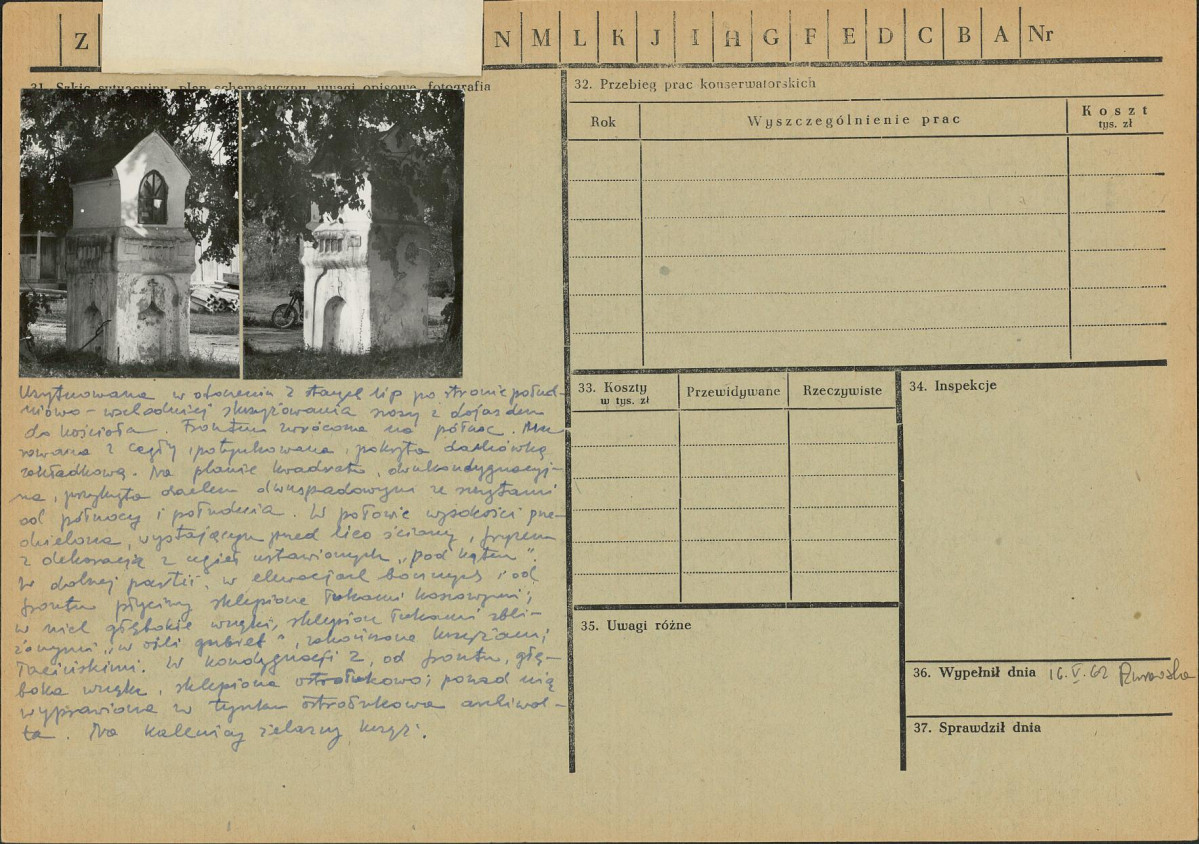 Z
N M L K J I H G F E D C B A Nr
31. Szkic sytuacyjny, plan schematyczny, uwagi opisowe, fotografia
Usytuowana w otoczeniu 2 starych lip po stronie połud-
niowo-wschodniej skrzyżowania szosy z dojazdem
do kościoła. Frontem zwrócona na północ. Mu-
rowana z cegły, potynkowana, pokryta dachówką
zakładkową. Na planie kwadratu, dwukondygnacyj-
na, przykryta dachem dwuspadowym ze szczytami
od północy i południa. W połowie wysokości prze-
dzielona, wystającym przed lico ściany, fryzem
z dekoracją z cegieł ustawionych „pod kątem".
W dolnej partii, w elewacjach bocznych i od
frontu płyciny sklepione łukami koszowymi;
w nich głębokie wnęki, sklepione łukami zbli-
żonymi „w ośli grzbiet", zakończone krzyżami
łacińskimi. W kondygnacji 2, od frontu, głę-
boka wnęka, sklepiona ostrołukowo; ponad nią
wyprawiona w tynku ostrołukowa archiwol-
ta. Na kalenicy żelazny krzyż.
32. Przebieg prac konserwatorskich
Rok
Wyszczególnienie prac
Koszt
tys. zł
33. Koszty
w tys. zł
Przewidywane
Rzeczywiste
34. Inspekcje
35. Uwagi różne
36. Wypełnił dnia 16.V.62
37. Sprawdził dnia